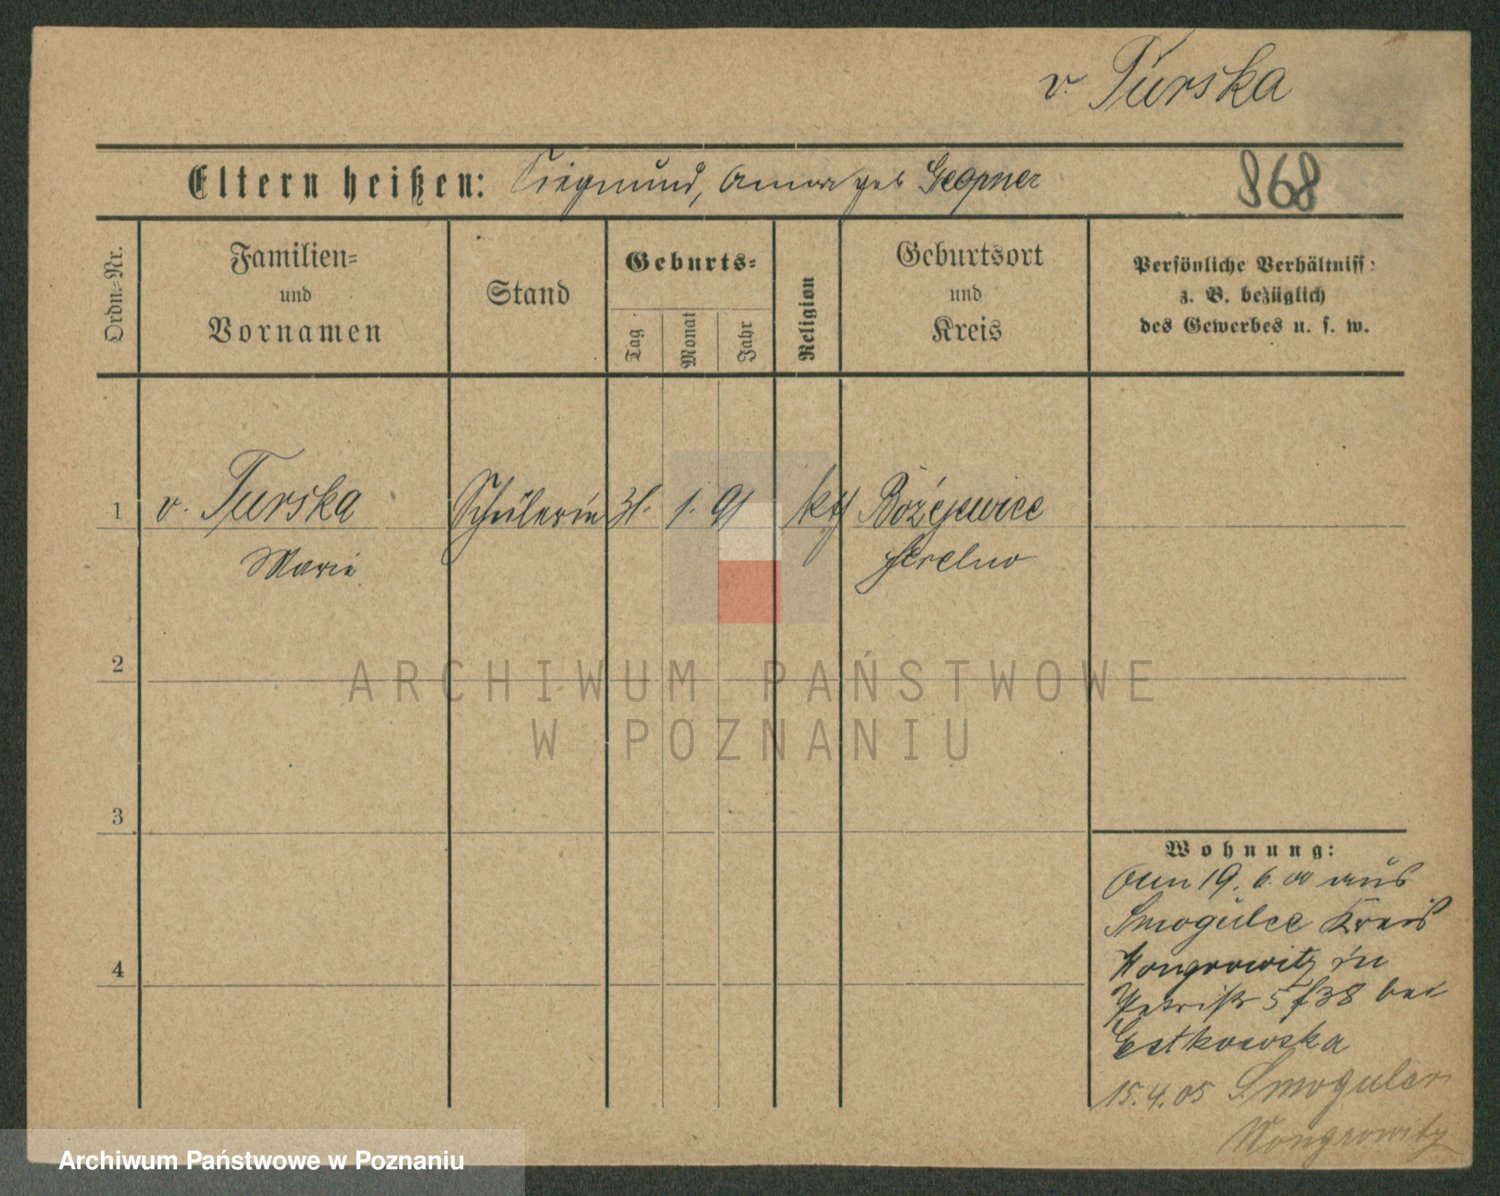 v. Turska
Eltern heißen: Siegmund, Anna geb Gepner
868
Ordn.-Nr.
Familien-
und
Vornamen
Stand
Geburts-
Tag
Monat
Jahr
Religion
Geburtsort
und
Kreis
Persönliche Verhältniss:
z. B. bezüglich
des Gewerbes u. s. w.
1 v. Turska Schülerin 31. 1. 91 kth Bożejewice
Marie Strelno
2
3
4
Wohnung:
Am 19. 6. 00 aus
Smogulec Kreis
Wongrowitz in
Petristr 5 bei
15.4.05 Smogulec
Wongrowitz
ARCHIWUM PAŃSTWOWE
W POZNANIU
Archiwum Państwowe w Poznaniu